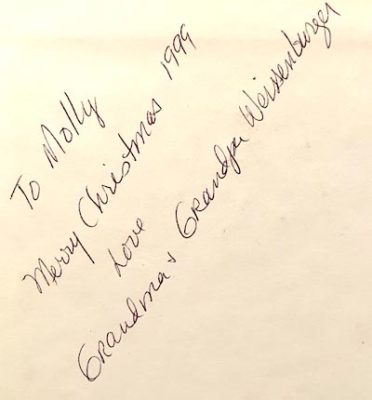 To Molly
Merry Christmas 1999
Love
Grandma & Grandpa Weissenburger